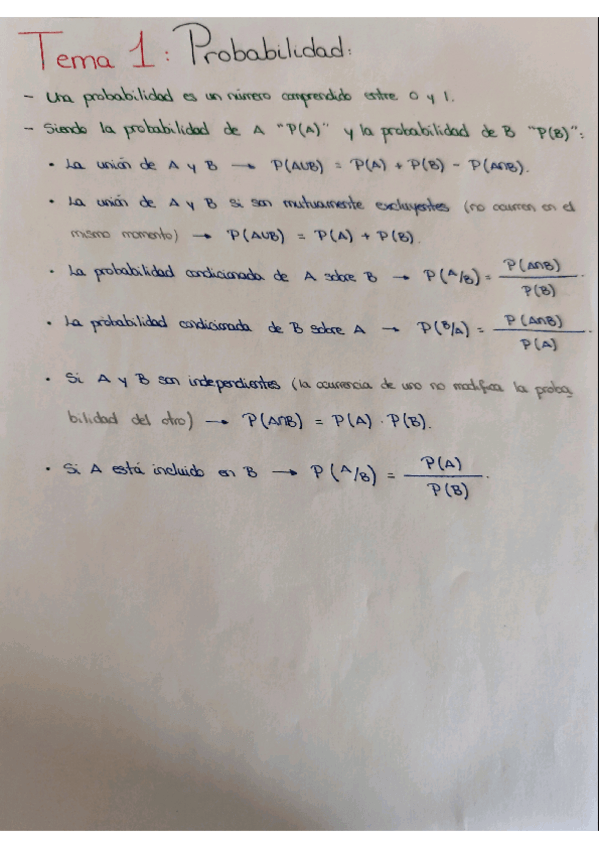 Tema 1: Probabilidad:
- Una probabilidad es un número comprendido entre 0 y 1.
- Siendo la probabilidad de A "P(A)" y la probabilidad de B "P(B)":
• La unión de A y B → P(A∪B) = P(A) + P(B) - P(A∩B).
• La unión de A y B si son mutuamente excluyentes (no ocurren en el
mismo momento) → P(A∪B) = P(A) + P(B).
• La probabilidad condicionada de A sobre B → P(A/B) = P(A∩B) / P(B).
• La probabilidad condicionada de B sobre A → P(B/A) = P(A∩B) / P(A).
• Si A y B son independientes (la ocurrencia de uno no modifica la proba
bilidad del otro) → P(A∩B) = P(A) · P(B).
• Si A está incluido en B → P(A/B) = P(A) / P(B).